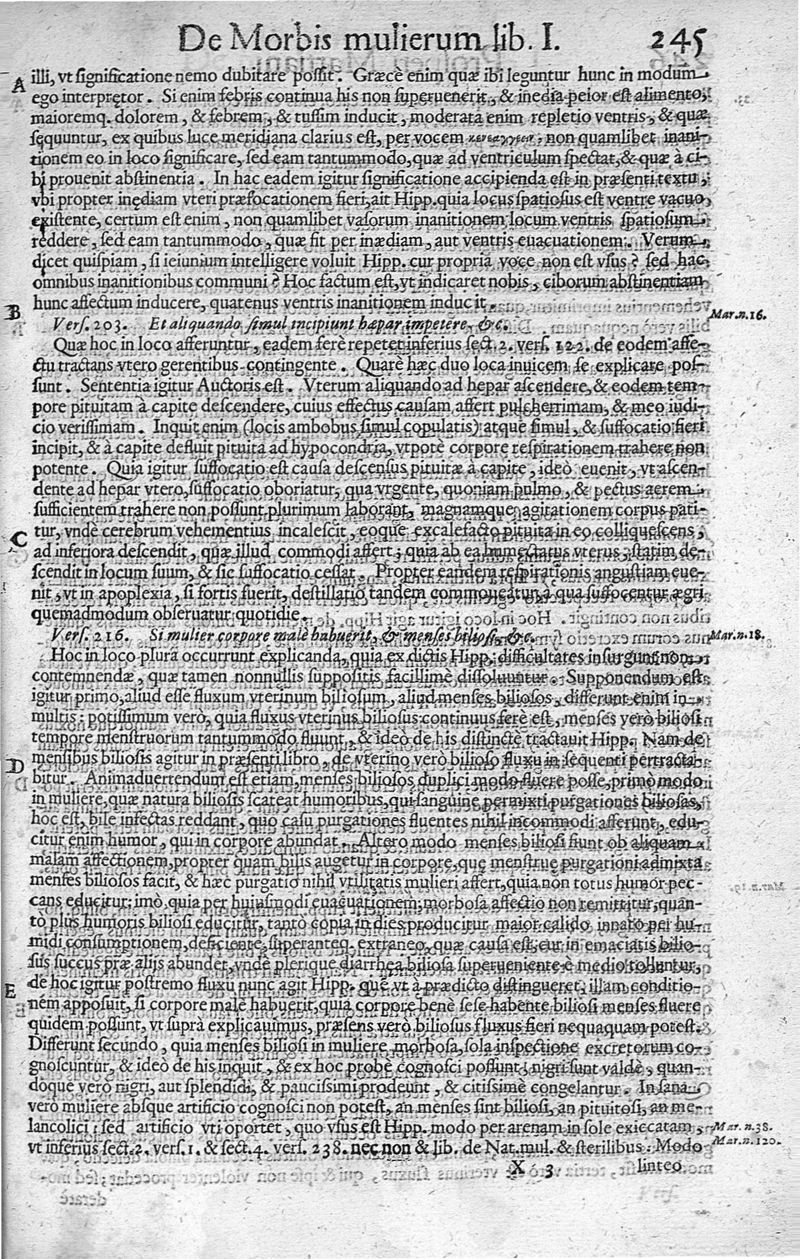 De Morbis mulierum lib. I. 245
A illi, vt significatione nemo dubitare possit. Græcè enim quæ ibi leguntur hunc in modum
ego interpretor. Si enim febris continua his non superuenerit, & inedia peior est alimento,
maioremq. dolorem, & febrem, & tussim inducit, moderata enim repletio ventris, & quæ
sequuntur, ex quibus luce meridiana clarius est, per vocem non quamlibet inani-
tionem eo in loco significare, sed eam tantummodo, quæ ad ventriculum spectat, & quæ à ci-
bi prouenit abstinentia. In hac eadem igitur significatione accipienda est in præsenti textu,
vbi propter inediam vteri præfocationem fieri, ait Hipp. quia locus spatiosus est ventre vacuo
existente, certum est enim, non quamlibet vasorum inanitionem locum ventris spatiosum
reddere, sed eam tantummodo, quæ fit per inædiam, aut ventris euacuationem. Verum
dicet quispiam, si ieiunium intelligere voluit Hipp. cur propria voce non est vsus? sed hac
omnibus inanitionibus communi? Hoc factum est, vt indicaret nobis, ciborum abstinentiam
B hunc affectum inducere, quatenus ventris inanitionem inducit.
Vers. 203. Et aliquando simul incipiunt hæpar impetere, &c. Mar. n. 16.
Quæ hoc in loco afferuntur, eadem ferè repetet inferius sect. 2. vers. 122. de eodem affe-
ctu tractans vtero gerentibus contingente. Quarè hæc duo loca inuicem se explicare pos-
sunt. Sententia igitur Auctoris est. Vterum aliquando ad hepar ascendere, & eodem tem-
pore pituitam à capite descendere, cuius effectus causam affert pulcherrimam, & meo iudi-
cio verissimam. Inquit enim (locis ambobus simul copulatis) atque simul, & suffocatio fieri
incipit, & à capite defluit pituita ad hypocondria, vtpotè corpore respirationem trahere non
potente. Quia igitur suffocatio est causa descensus pituitæ à capite, ideò euenit, vt ascen-
dente ad hepar vtero, suffocatio oboriatur, qua vrgente, quoniam pulmo, & pectus aerem
sufficientem trahere non possunt, plurimum laborant, magnamque agitationem corpus pati-
C tur, vndè cerebrum vehementius incalescit, eoque excalefacto pituita in eo colliquescens,
ad inferiora descendit, quæ illud commodi affert; quia ab ea humectatus vterus, statim de-
scendit in locum suum, & sic suffocatio cessat. Propter eandem respirationis angustiam eue-
nit, vt in apoplexia, si fortis fuerit, destillatio tandem commoueatur, à qua suffocentur ægri
quemadmodum obseruatur quotidie.
Vers. 216. Si mulier corpore malè habuerit, & menses biliosi, &c. Mar. n. 18.
Hoc in loco plura occurrunt explicanda, quia ex dictis Hipp. difficultates insurgunt non
contemnendæ, quæ tamen nonnullis suppositis facillimè dissoluuntur. Supponendum est
igitur primo, aliud esse fluxum vterinum biliosum, aliud menses biliosos, differunt enim in
multis: potissimum verò, quia fluxus vterinus biliosus continuus ferè est, menses verò biliosi
tempore menstruorum tantummodo fluunt, & ideò de his distinctè tractauit Hipp. Nam de
D mensibus biliosis agitur in præsenti libro, de vterino verò bilioso fluxu in sequenti pertracta-
bitur. Animaduertendum est etiam, menses biliosos duplici modo fluere posse, primò modo
in muliere, quæ natura biliosis scateat humoribus, qui sanguine permixti purgationes biliosas,
hoc est, bile infectas reddant, quo casu purgationes fluentes nihil incommodi afferunt, edu-
citur enim humor, qui in corpore abundat. Altero modo menses biliosi fiunt ob aliquam
malam affectionem, propter quam bilis augetur in corpore, quę menstruę purgationi admixta
menses biliosos facit, & hæc purgatio nihil vtilitatis mulieri affert, quia non totus humor pec-
cans educitur; imò, quia per huiusmodi euacuationem, morbosa affectio non remittitur, quan-
to plus humoris biliosi educitur, tantò copia in dies producitur maior, calido innato per hu-
midi consumptionem, deficiente, superanteq. extraneo, quæ causa est, cur in emaciatis bilio-
sus succus præ aliis abundet, vndè plerique diarrhea biliosa superueniente è medio tolluntur,
E de hoc igitur postremo fluxu nunc agit Hipp. quę vt à prædicto distingueret, illam conditio-
nem apposuit, si corpore malè habuerit, quia corpore benè sese habente biliosi menses fluere
quidem possunt, vt suprà explicauimus, præsens verò biliosus fluxus fieri nequaquam potest.
Differunt secundo, quia menses biliosi in muliere morbosa, sola inspectione excretorum co-
gnoscuntur, & ideò de his inquit, & ex hoc probè cognosci possunt; nigri sunt valdè, quan-
doque verò nigri, aut splendidi, & paucissimi prodeunt, & citissimè congelantur. In sana
verò muliere absque artificio cognosci non potest, an menses sint biliosi, an pituitosi, an me-
lancolici: sed artificio vti oportet, quo vsus est Hipp. modo per arenam in sole exiccatam, Mar. n. 38.
vt inferius sect. 2. vers. 1. & sect. 4. vers. 238. nec non & lib. de Nat. mul. & sterilibus: Modo Mar. n. 120.
X 3 linteo